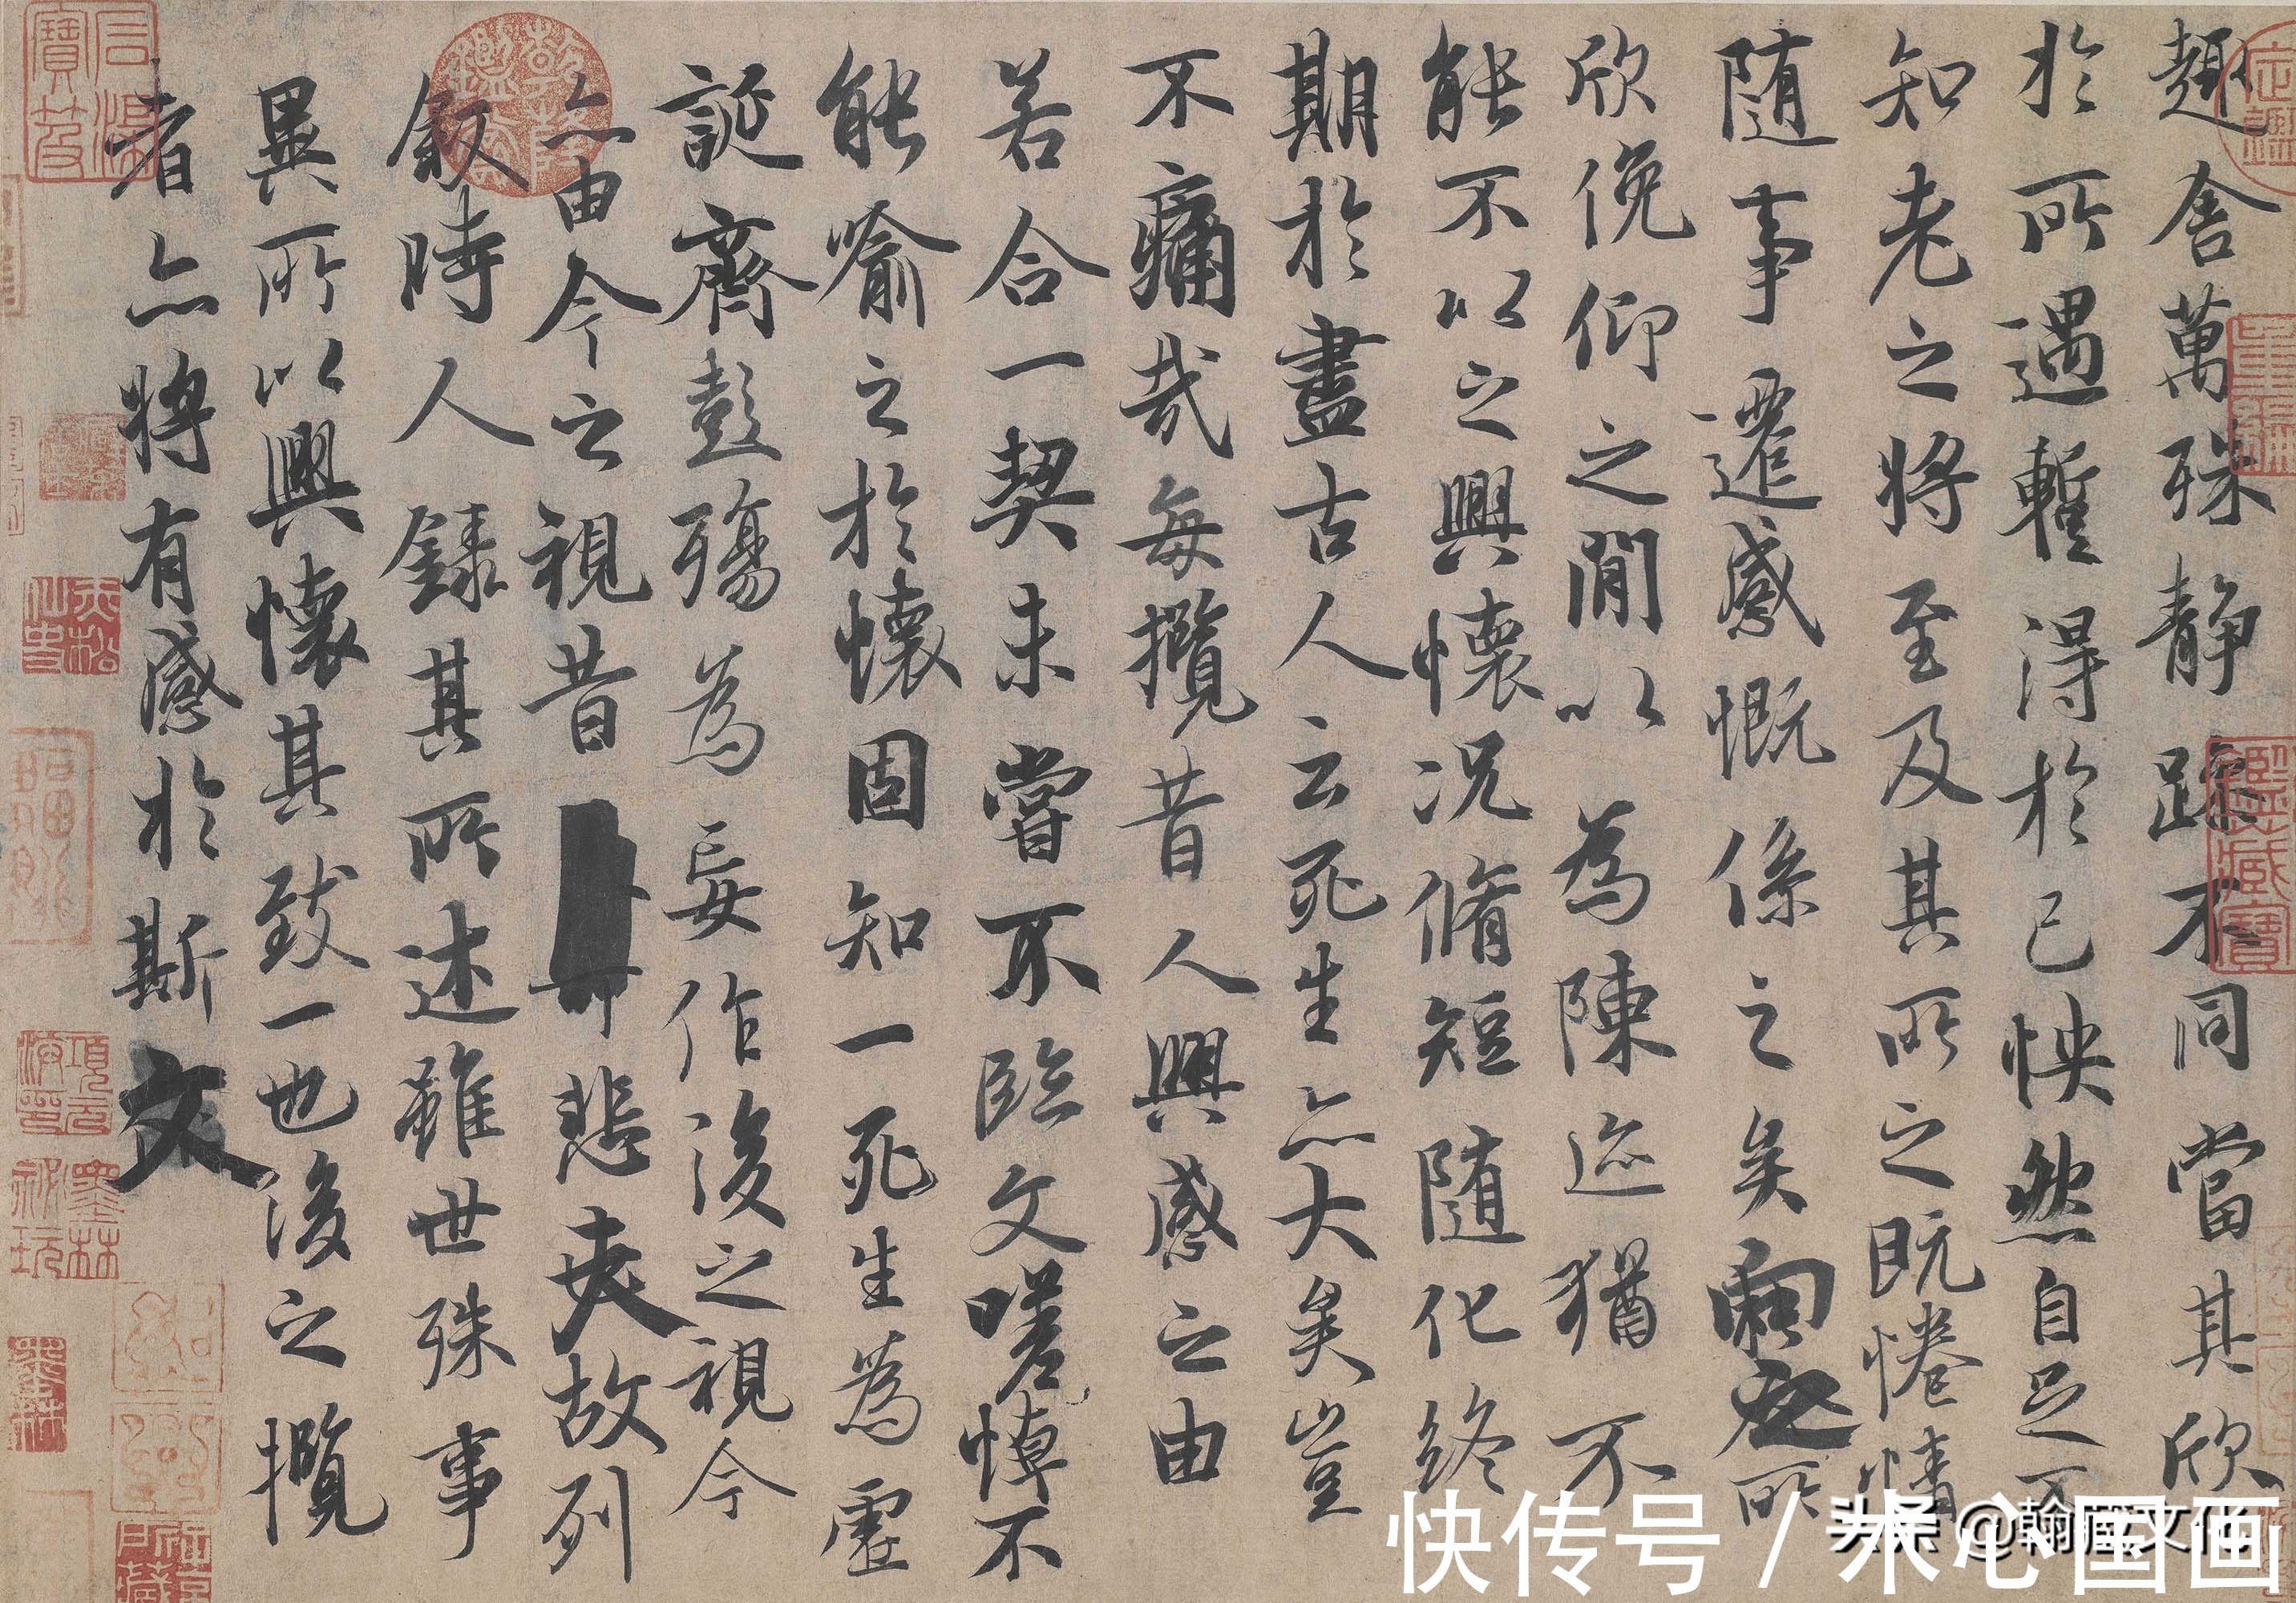 趣舍萬殊静躁不同當其欣
於所遇暫得於己怏然自足不
知老之將至及其所之既惓情
随事遷感慨係之矣向之所
欣俛仰之閒以為陳迹猶不
能不以之興懷況脩短随化終
期於盡古人云死生亦大矣豈
不痛哉每攬昔人興感之由
若合一契未嘗不臨文嗟悼不
能喻之於懷固知一死生為虛
誕齊彭殤為妄作後之視今
亦由今之視昔悲夫故列
叙時人錄其所述雖世殊事
異所以興懷其致一也後之攬
者亦將有感於斯文
快传号 / 米心国画